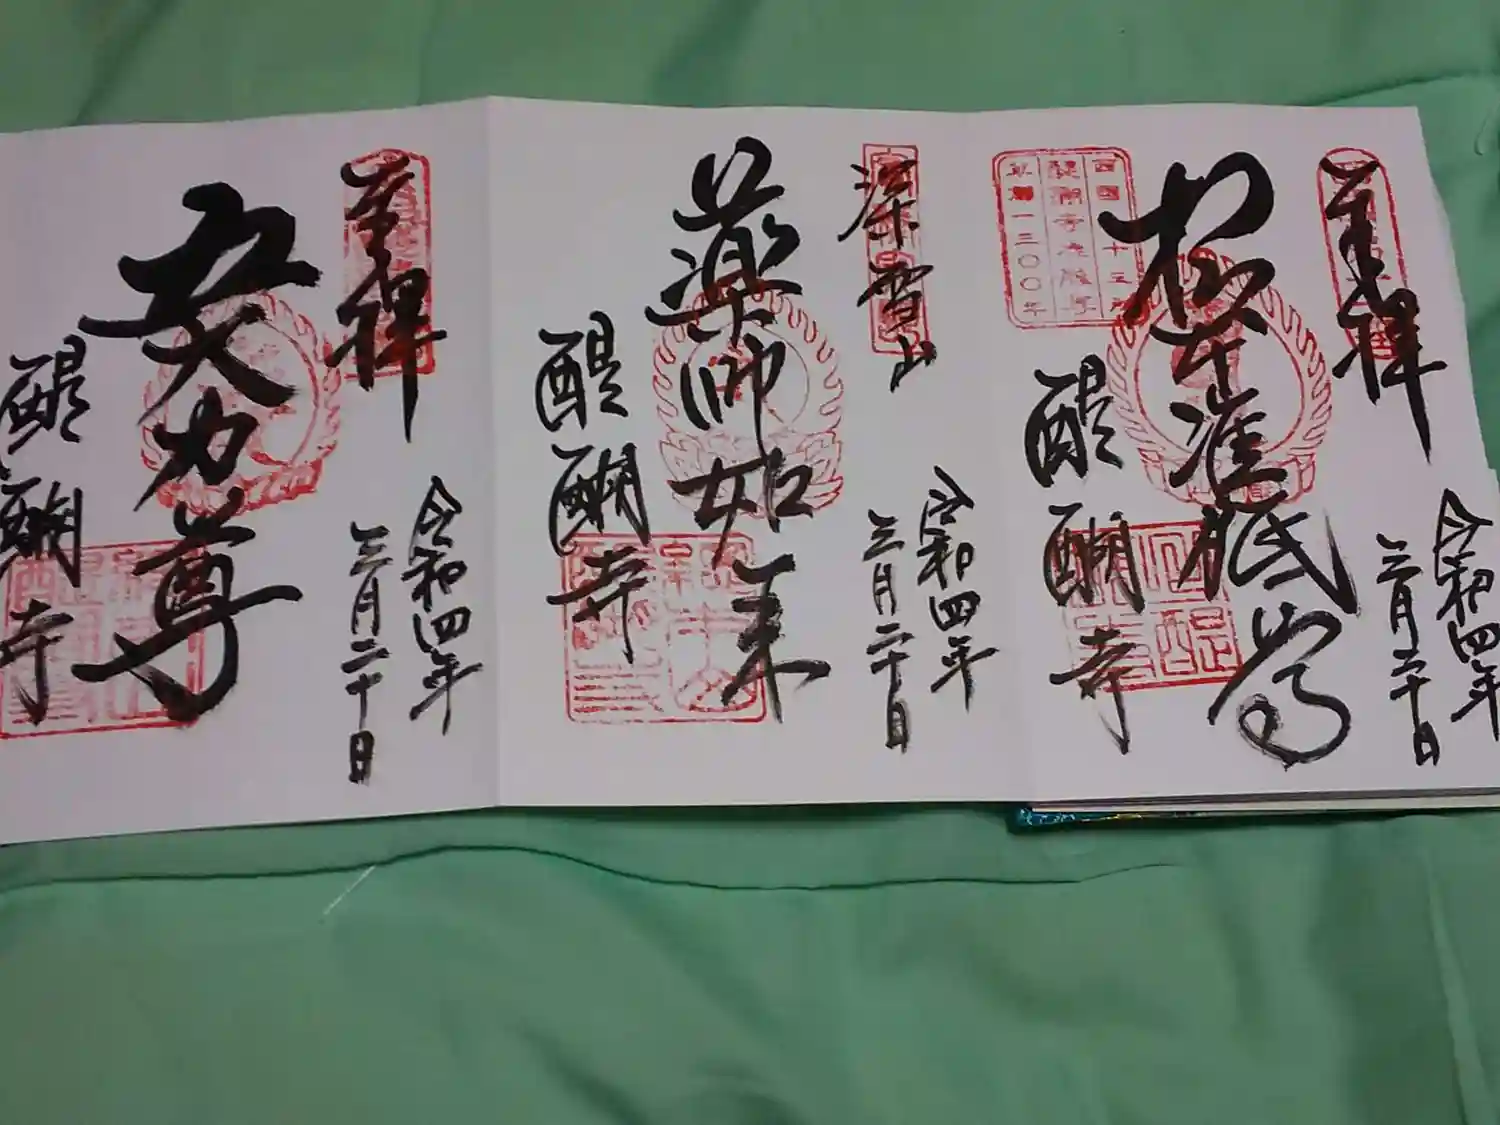 奉拝
令和四年
三月二十日
根本准胝尊
西国三十三所
草創一三〇〇年
醍醐寺
深雪山
令和四年
三月二十日
薬師如来
醍醐寺
奉拝
令和四年
三月二十日
五大力尊
醍醐寺